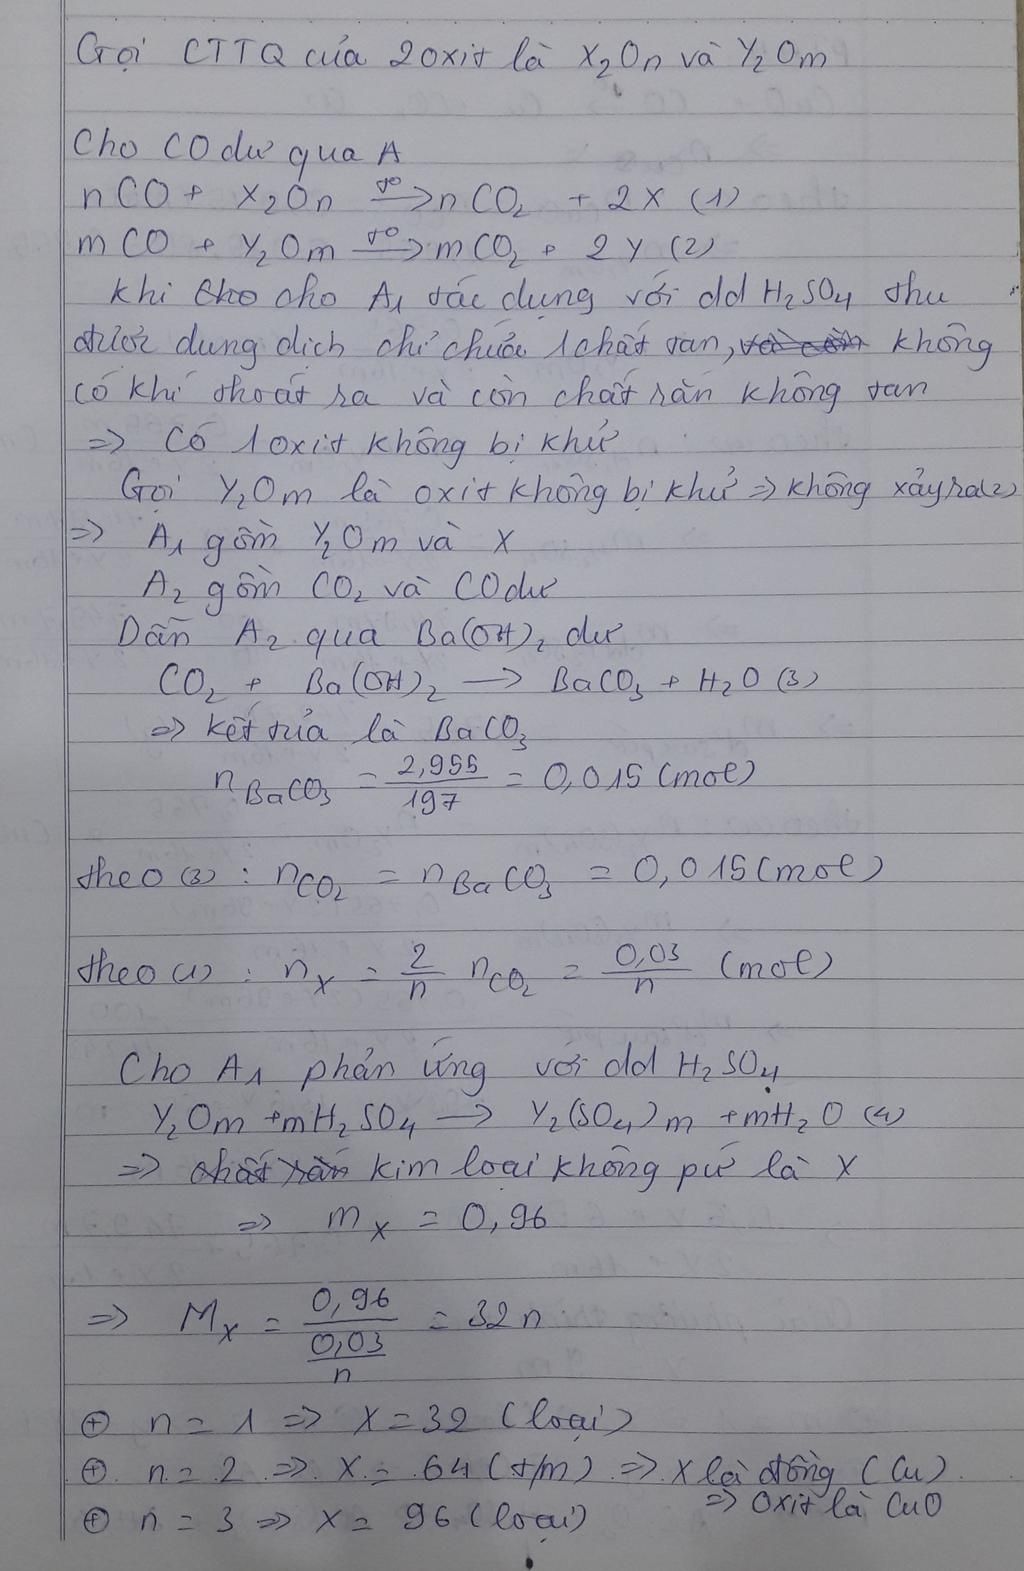 Gọi CTTQ của 2 oxit là X₂On và Y₂Om
Cho CO dư qua A
nCO + X₂On →(t°) nCO₂ + 2X (1)
mCO + Y₂Om →(t°) mCO₂ + 2Y (2)
khi cho cho A₁ tác dụng với dd H₂SO₄ thu
được dung dịch chỉ chứa 1 chất tan, và còn không
có khí thoát ra và còn chất rắn không tan
=> Có 1 oxit không bị khử
Gọi Y₂Om là oxit không bị khử => không xảy ra (2)
=> A₁ gồm Y₂Om và X
A₂ gồm CO₂ và CO dư
Dẫn A₂ qua Ba(OH)₂ dư
CO₂ + Ba(OH)₂ → BaCO₃ + H₂O (3)
=> kết tủa là BaCO₃
nBaCO₃ = 2,955/197 = 0,015 (mol)
theo (3) : nCO₂ = nBaCO₃ = 0,015 (mol)
theo (1) : nX = 2/n nCO₂ = 0,03/n (mol)
Cho A₁ phản ứng với dd H₂SO₄
Y₂Om + mH₂SO₄ → Y₂(SO₄)m + mH₂O (4)
=> chất rắn kim loại không pứ là X
=> mX = 0,96
=> MX = 0,96/(0,03/n) = 32n
⊕ n = 1 => X = 32 (loại)
⊕ n = 2 => X = 64 (t/m) => X là đồng (Cu)
=> oxit là CuO
⊕ n = 3 => X = 96 (loại)